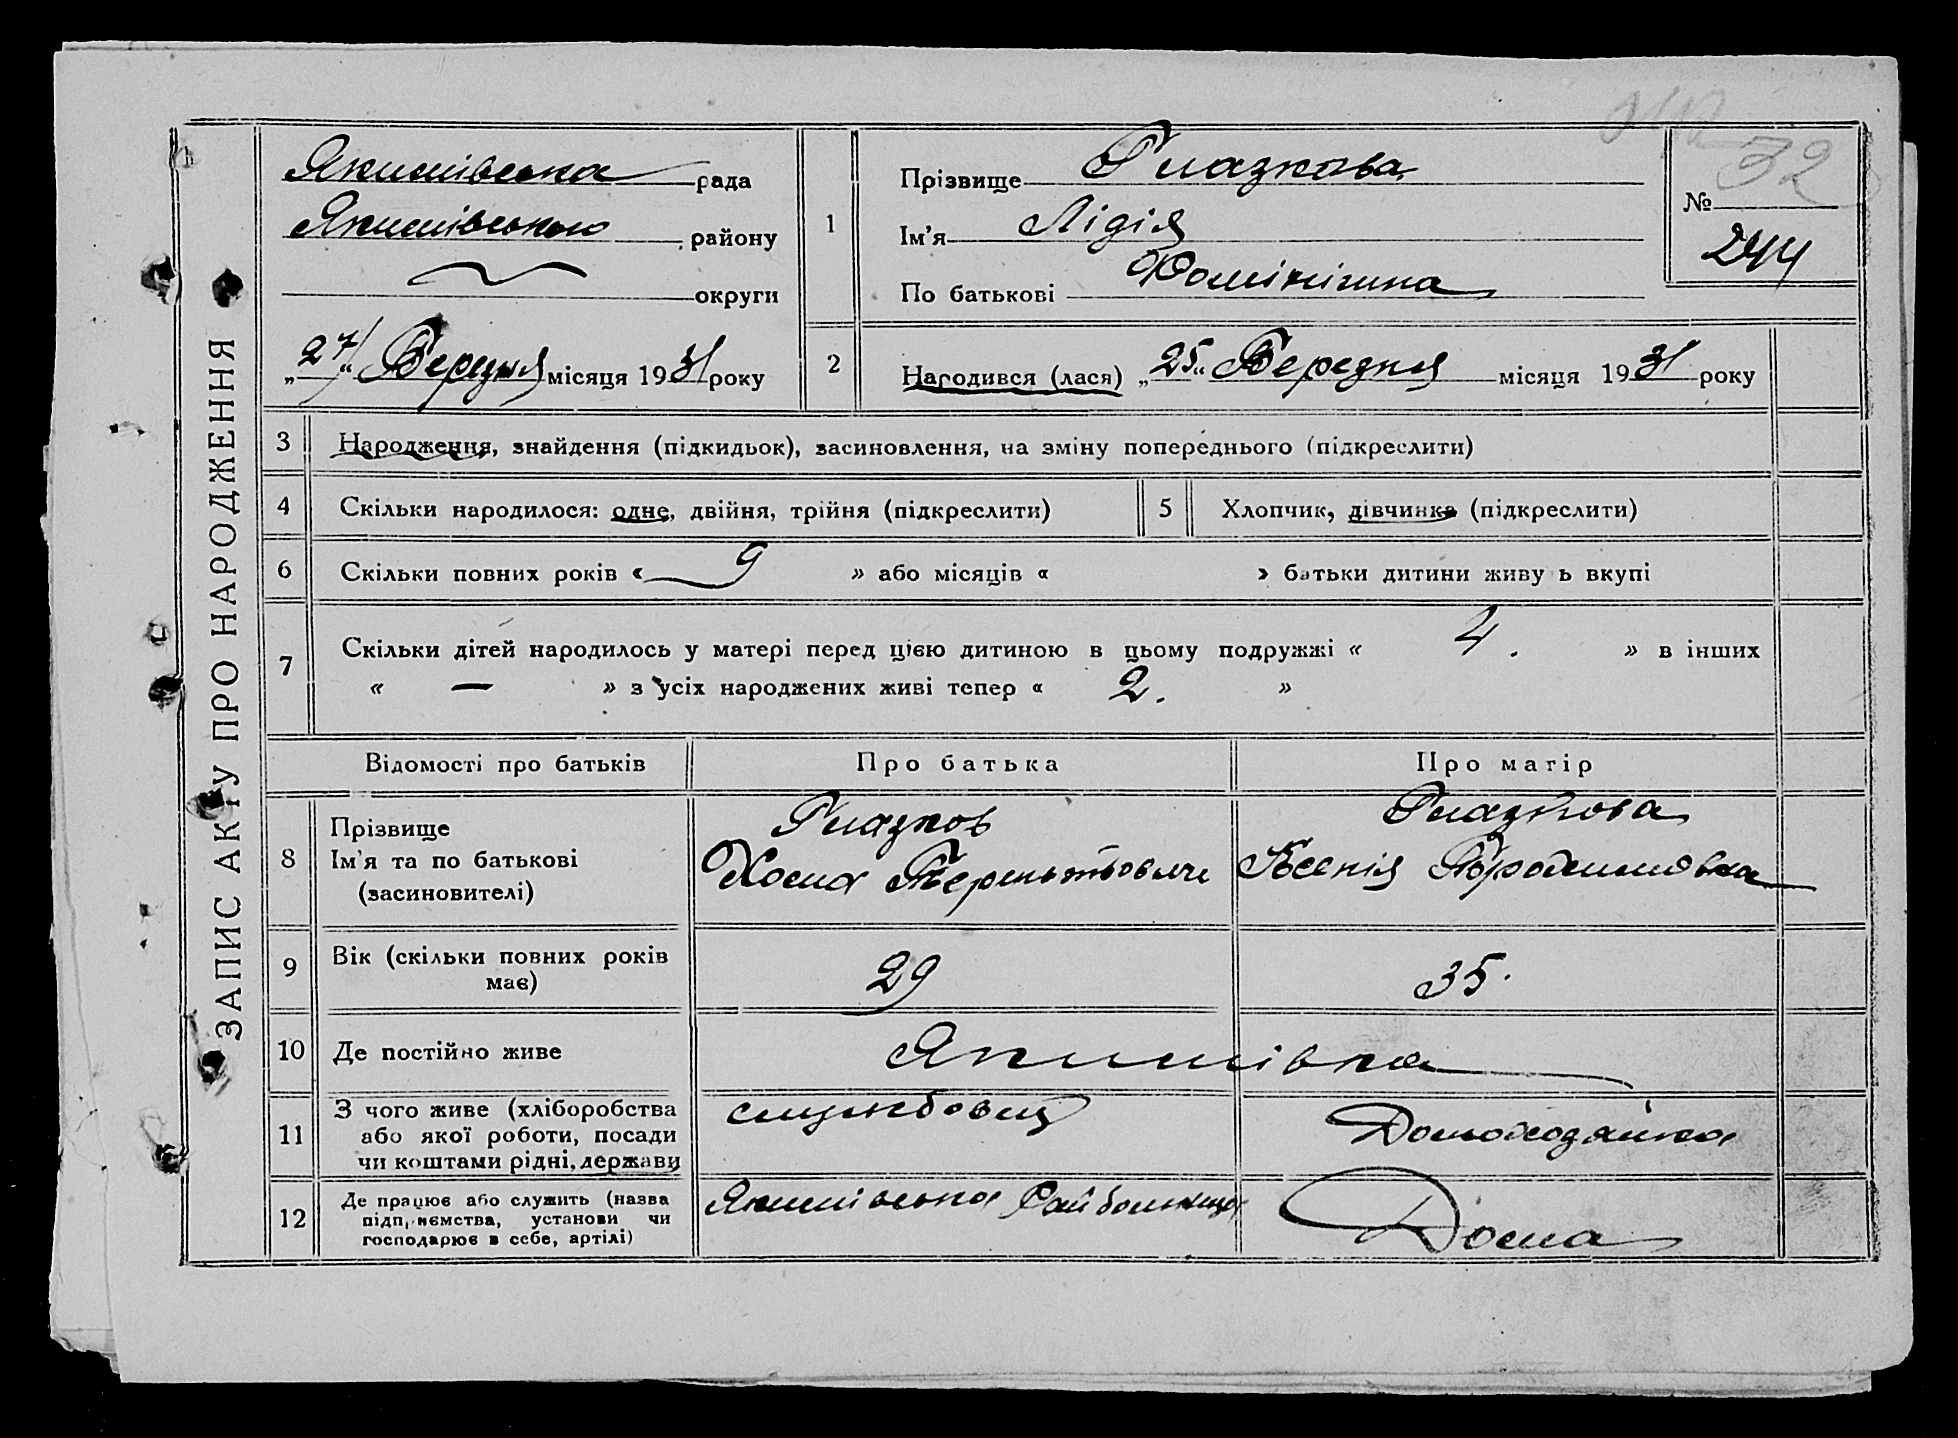 ЗАПИС АКТУ ПРО НАРОДЖЕННЯ
Якимівська рада
Якимівського району
округи
„27“ Березня місяця 1931 року
1
Прізвище Глазкова
Ім’я Лідія
По батькові Хомінішна
32
№
244
2
Народився (лася) „25“ Березня місяця 1931 року
3 Народження, знайдення (підкидьок), засиновлення, на зміну попереднього (підкреслити)
4 Скільки народилося: одне, двійня, трійня (підкреслити)
5 Хлопчик, дівчинка (підкреслити)
6 Скільки повних років « 9 » або місяців « » батьки дитини живуть вкупі
7 Скільки дітей народилось у матері перед цією дитиною в цьому подружжі « 4. » в інших
« — » з усіх народжених живі тепер « 2. »
Відомості про батьків
Про батька
Про матір
8 Прізвище
Ім’я та по батькові
(засиновителі)
Глазков
Хома Терентьович
Глазкова
Ксенія
9 Вік (скільки повних років
має)
29
35.
10 Де постійно живе
Якимівка
11 З чого живе (хліборобства
або якої роботи, посади
чи коштами рідні, держави
службовец
Домохозяйка
12 Де працює або служить (назва
підприємства, установи чи
господарює в себе, артілі)
Якимівська Райбольниця
Дома